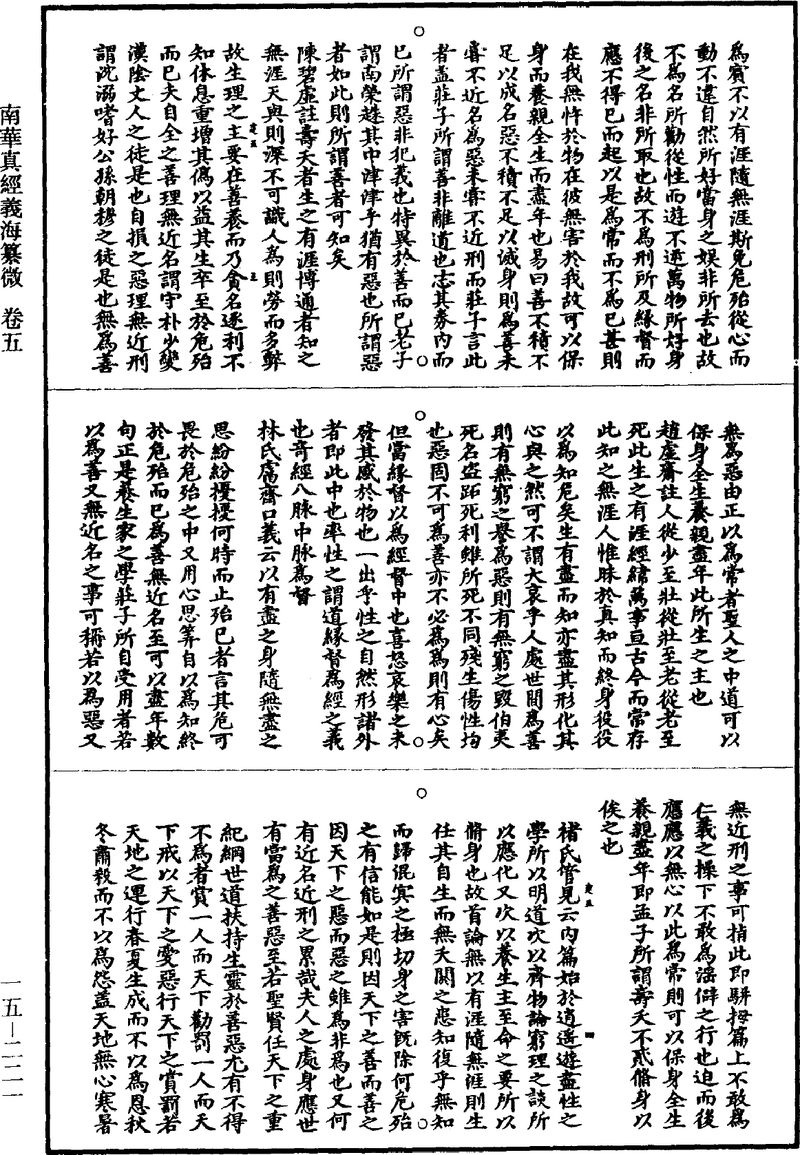 為賓不以有涯隨無涯斯免危殆從心而
動不違自然所好當身之娛非所去也故
不為名所勸從性而遊不逆萬物所好身
後之名非所取也故不為刑所及緣督而
應不得已而起以是為常而不為已甚則
在我無忤於物在彼無害於我故可以保
身而養親全生而盡年也易曰善不積不
足以成名惡不積不足以滅身則為善未
嘗不近名為惡未嘗不近刑而莊子言此
者盖莊子所謂善非離道也志其券內而
已所謂惡非犯義也特異於善而已老子
謂南榮趎其中津津乎猶有惡也所謂惡
者如此則所謂善者可知矣
陳碧虛註壽夭者生之有涯博通者知之
無涯天與則深不可識人為則勞而多弊
故生理之主要在善養而乃貪名逐利不
知休息重增其偽以益其生卒至於危殆
而已夫自全之善理無近名謂守朴少變
漢陰丈人之徒是也自損之惡理無近刑
謂沉溺嗜好公孫朝穆之徒是也無為善
無為惡由正以為常者聖人之中道可以
保身全生養親盡年此所生之主也
趙虛齋註人從少至壯從壯至老從老至
死此生之有涯經緯萬事亘古今而常存
此知之無涯人惟昧於真知而終身役役
以為知危矣生有盡而知亦盡其形化其
心與之然可不謂大哀乎人處世間為善
則有無窮之譽為惡則有無窮之毀伯夷
死名盜跖死利雖所死不同殘生傷性均
也惡固不可為善亦不必為為則有心矣
但當緣督以為經督中也喜怒哀樂之未
發其感於物也一出乎性之自然形諸外
者即此中也率性之謂道緣督為經之義
也奇經八脉中脉為督
林氏鬳齋口義云以有盡之身隨無盡之
思紛紛擾擾何時而止殆已者言其危可
畏於危殆之中又用心思筭自以為知終
於危殆而已為善無近名至可以盡年數
句正是養生家之學莊子所自受用者若
以為善又無近名之事可稱若以為惡又
無近刑之事可指此即駢拇篇上不敢為
仁義之操下不敢為滛僻之行也迫而後
應應以無心以此為常則可以保身全生
養親盡年即孟子所謂壽夭不貳脩身以
俟之也
褚氏管見云內篇始於逍遙遊盡性之
學所以明道次以齊物論窮理之談所
以應化又次以養生主至命之要所以
脩身也故首論無以有涯隨無涯則生
任其自生而無夭閼之患知復乎無知
而歸混冥之極切身之害既除何危殆
之有信能如是則因天下之善而善之
因天下之惡而惡之雖為非為也又何
有近名近刑之累哉夫人之處身應世
有當為之善惡至若聖賢任天下之重
紀綱世道扶持生靈於善惡尤有不得
不為者賞一人而天下勸罰一人而天
下戒以天下之愛惡行天下之賞罰若
天地之運行春夏生成而不以為恩秋
冬肅殺而不以為怨盖天地無心寒暑
南華真經義海纂微 卷五
一五—二二一